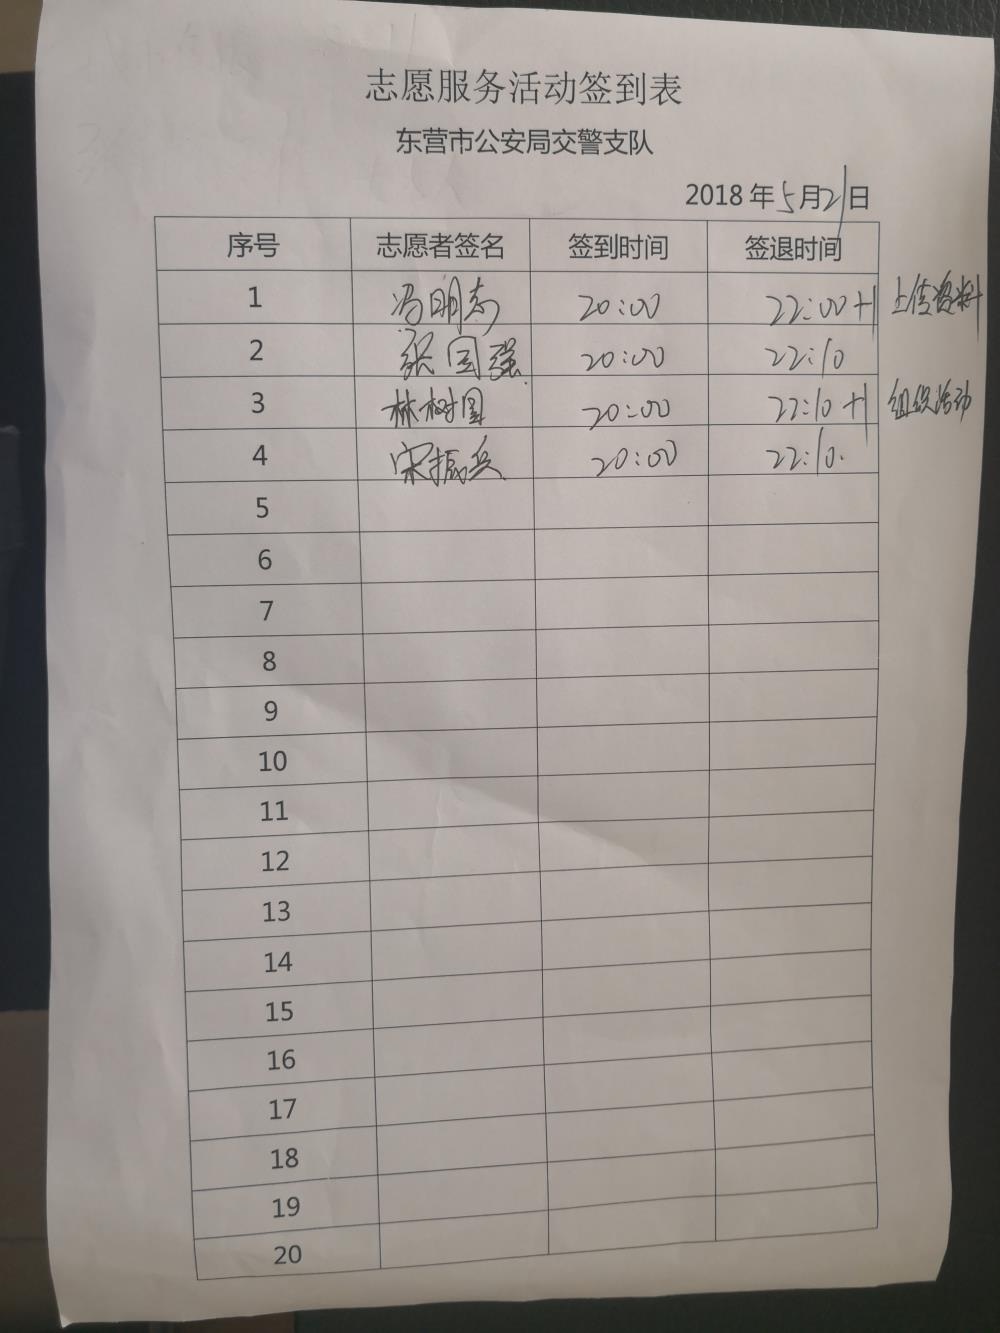 志愿服务活动签到表
东营市公安局交警支队
2018年5月21日
序号 志愿者签名 签到时间 签退时间
1 冯明志 20:00 22:00+1 上传资料
2 张国强 20:00 22:10
3 林树国 20:00 22:10+1 组织活动
4 宋振兵 20:00 22:10.
5
6
7
8
9
10
11
12
13
14
15
16
17
18
19
20